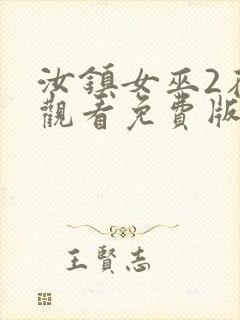 汝鎮女巫2
觀看免費版
王賢志